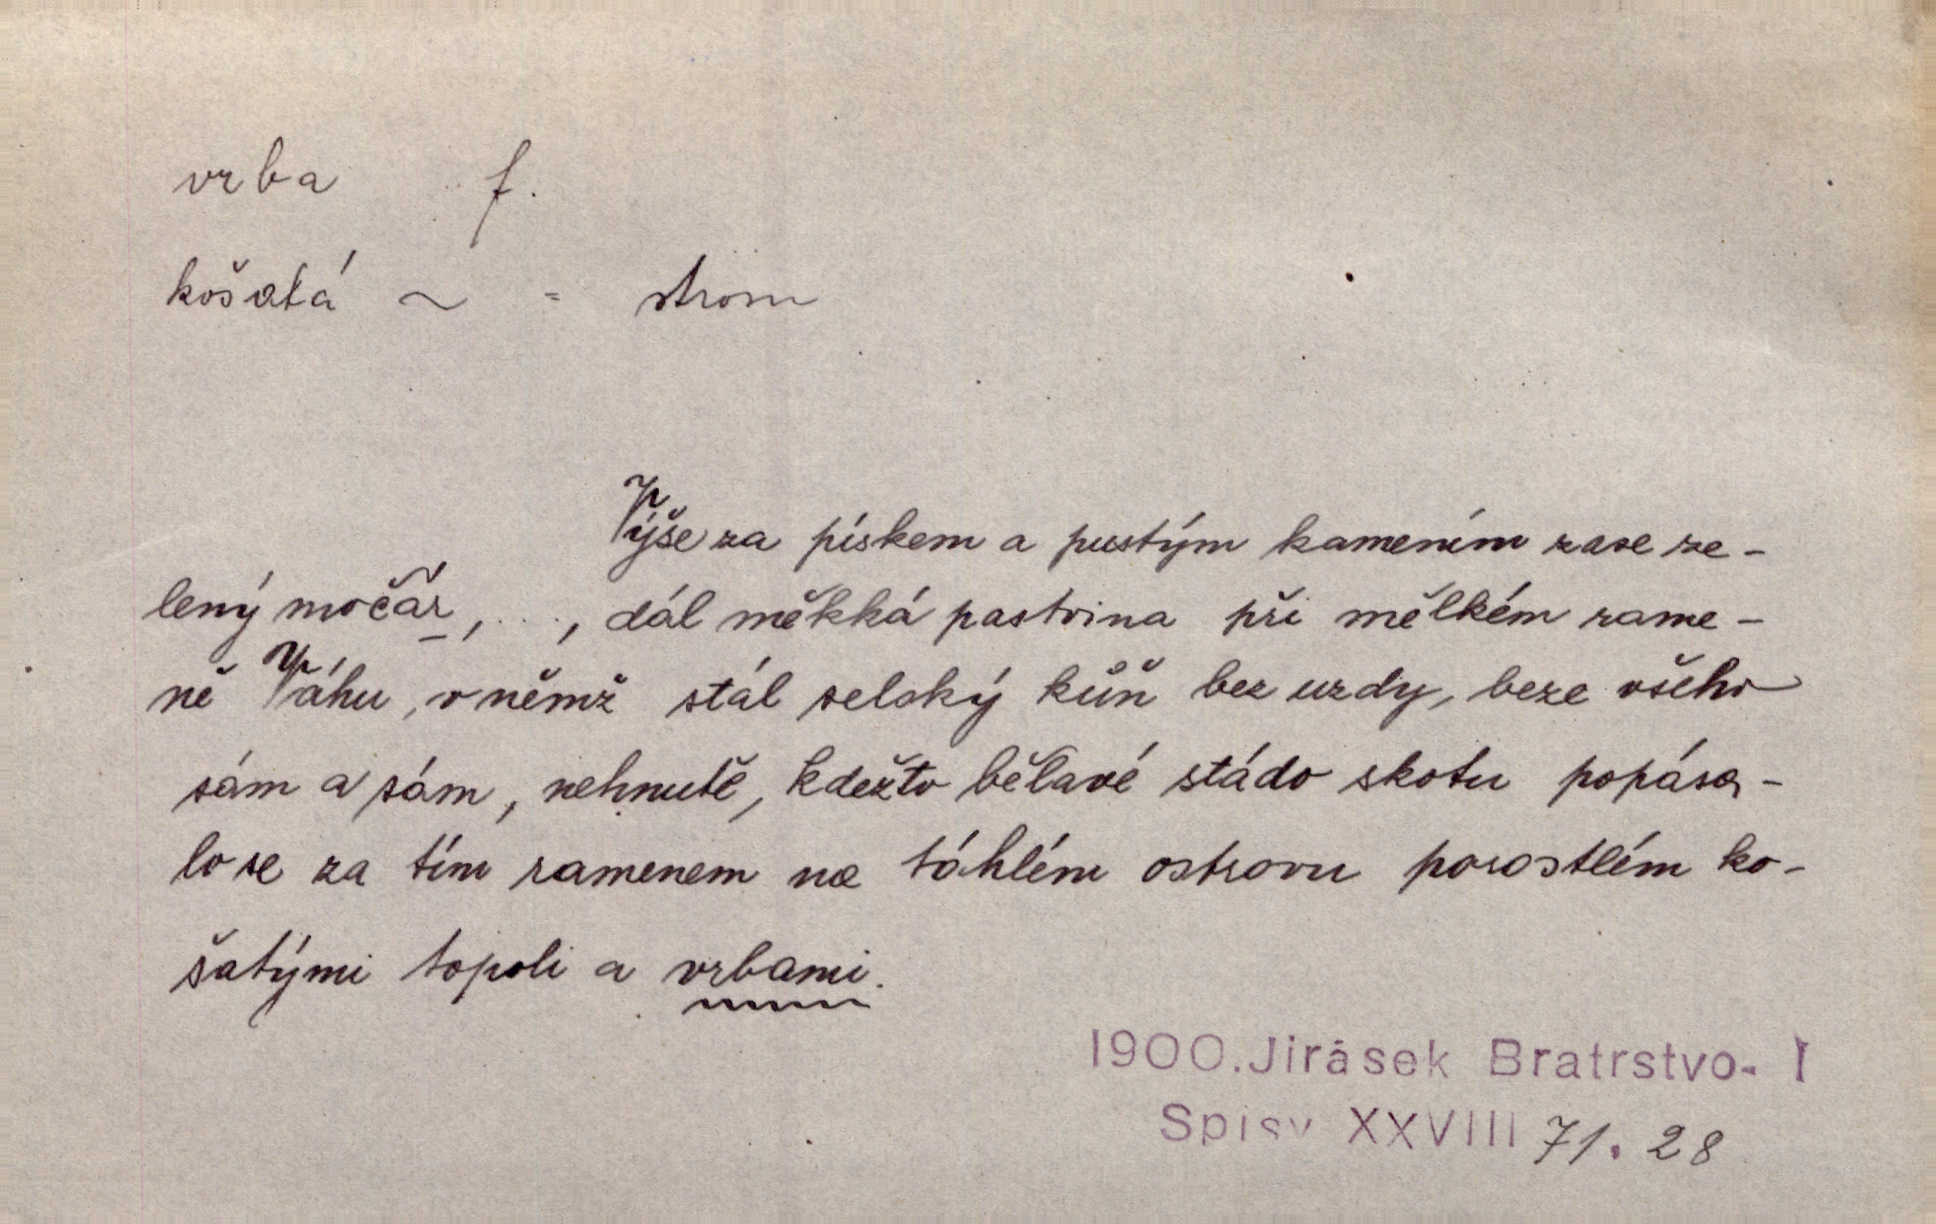 vrba f.
košatá ~ = strom
Výše za pískem a pustým kamením zase ze-
lený močár, ..., dál měkká pastvina při mělkém rame-
ně Váhu, v němž stál selský kůň bez uzdy, beze všeho
sám a sám, nehnutě, kdežto bělavé stádo skotu popása-
lo se za tím ramenem na táhlém ostrovu porostlém ko-
šatými topoli a vrbami.
1900. Jirásek Bratrstvo - I
Spisy XXVIII 71. 28